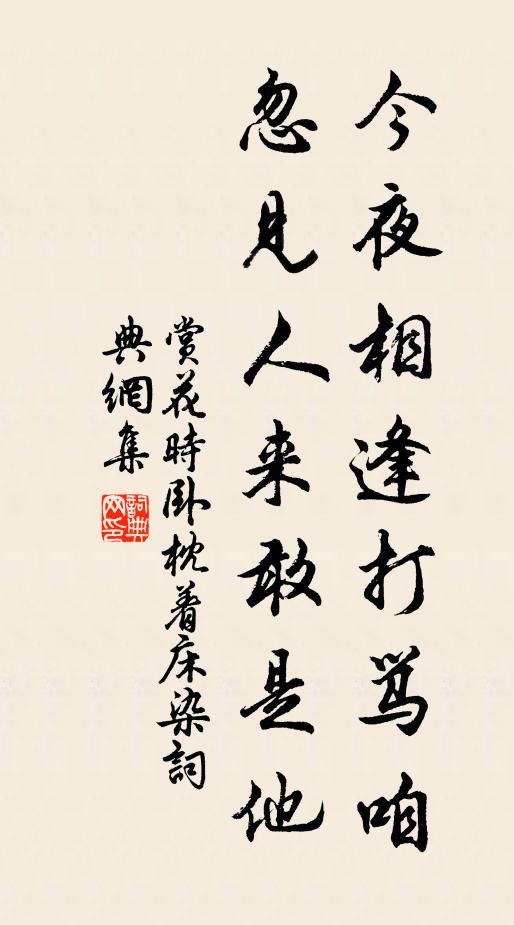 今夜相逢打骂咱
忽见人来敢是他
赏花時卧枕着床染詞
典網集
詞典
网印